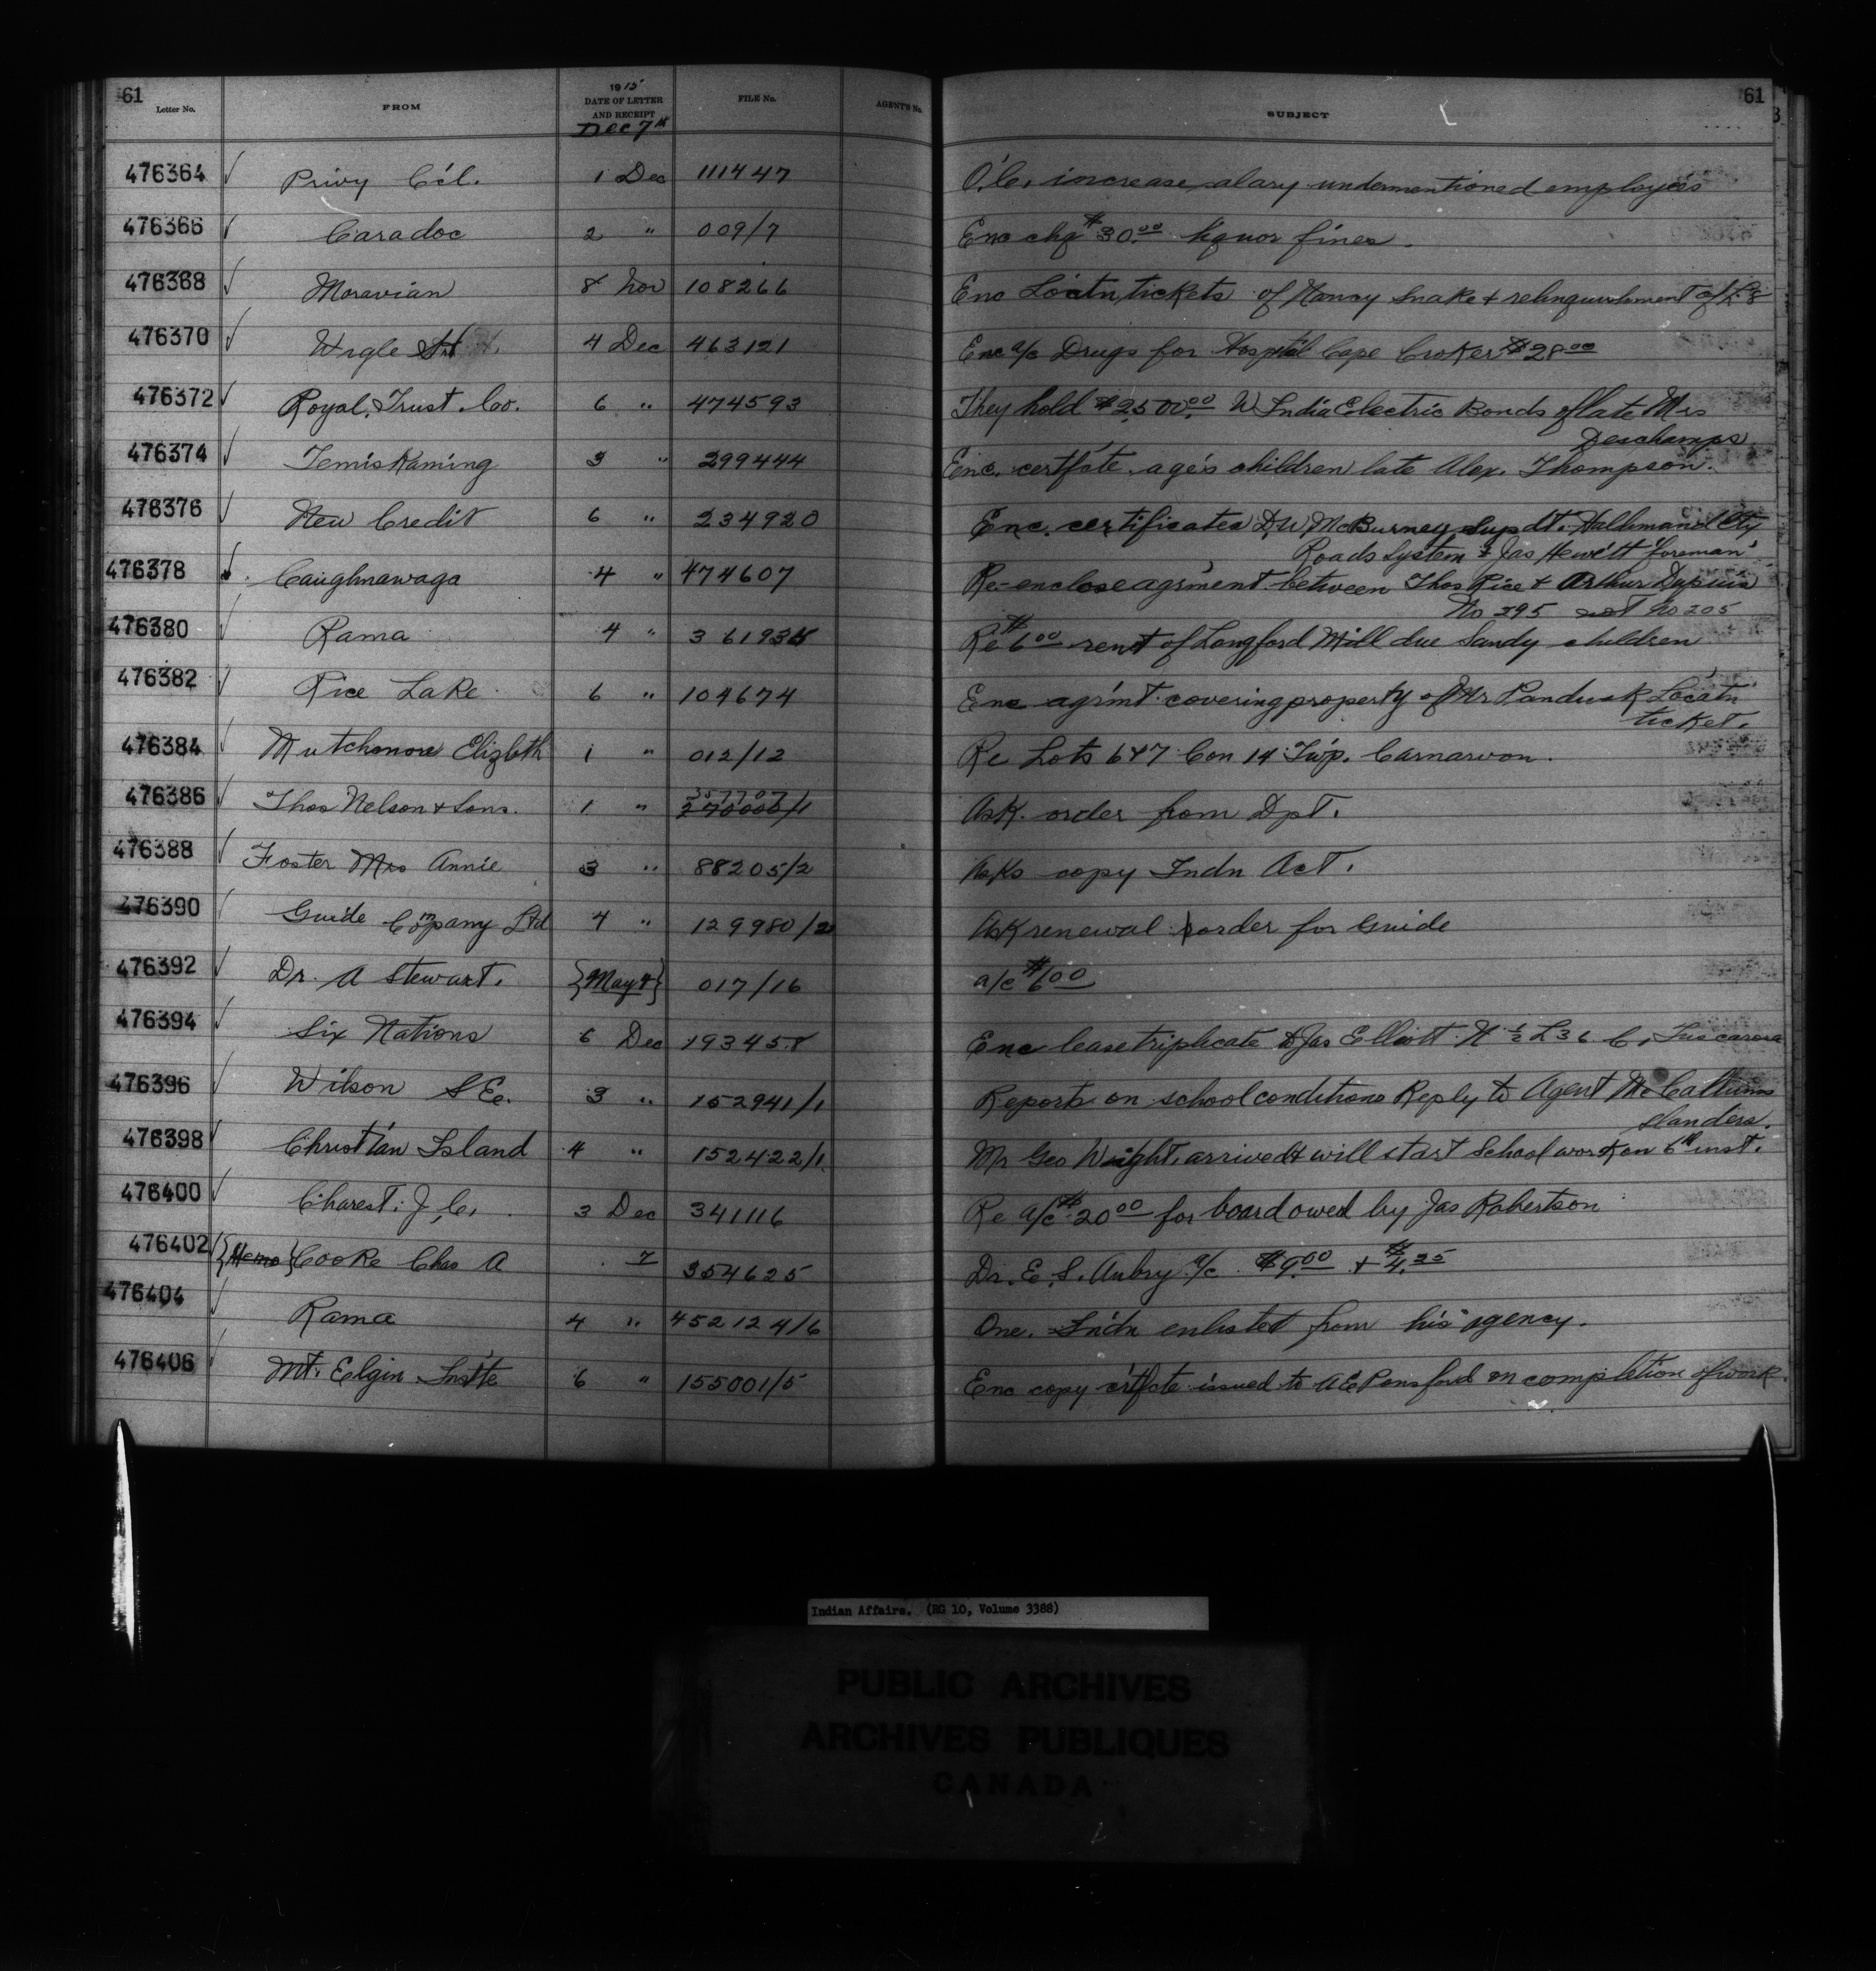 61 61
Letter No. FROM 1915 DATE OF LETTER AND RECEIPT Dec 7th FILE No. AGENT'S No. SUBJECT
476364 Privy C'cl. 1 Dec 111447 O.C. increase salary undermentioned employees
476366 Caradoc 2 " 009/7 Enc chq $30.00 liquor fines.
476368 Moravian 8 Nov 108266 Enc Loctn tickets of Nancy Snake & relinquishment of
476370 Wigle 4 Dec 463121 Enc a/c Drugs for Hosptal Cape Croker $28.00
476372 Royal Trust Co. 6 " 474593 They hold $2500.00 W India Electric Bonds of late Mrs
Deschamps
476374 Temiskaming 3 " 299444 Enc. certfcate ages children late Alex. Thompson.
476376 New Credit 6 " 234920 Enc. certificates D.W. McBurney Supdt. Haldimand Cty
Roads System & Jas Hewitt foreman
476378 Caughnawaga 4 " 474607 Re-enclose agrment between Thos Rice & Arthur Dupuis
No 295 not No 205
476380 Rama 4 " 361934 Re $6.00 rent of Longford Mill due Sandy children
476382 Rice Lake 6 " 104674 Enc agrmt covering property of Mr Locatn
ticket.
476384 Mutchmore Elizbth 1 " 012/12 Re Lots 6 & 7 Con 14 Twp. Carnarvon.
476386 Thos Nelson & Sons. 1 " 357707 270000/1 Ask order from Dpt.
476388 Foster Mrs Annie 3 " 88205/2 Asks copy Indn Act.
476390 Guide Company Ltd 4 " 129980/2 Ask renewal order for Guide
476392 Dr. A Stewart. {May 4} 017/16 a/c $6.00
476394 Six Nations 6 Dec 193458 Enc lease triplicate to Jas Elliott N ½ L 36 C, Tuscarora
476396 Wilson S E. 3 " 152941/1 Reports on school conditions Reply to Agent McCallums
slanders.
476398 Christian Island 4 " 152422/1 Mr Geo Wright, arrived & will start School work on 6th inst.
476400 Charest J.C. 3 Dec 341116 Re a/c $20.00 for board owed by Jas Robertson
476402 {Memo} Cooke Chas A 7 354625 Dr. E.S. Aubry a/c $9.00 + $4.25
476404 Rama 4 " 452124/6 One Indn enlisted from his agency.
476406 Mt. Elgin Instte 6 " 155001/5 Enc copy crtfcte issued to A E Ponsford on completion of work.
Indian Affairs. (RG 10, Volume 3388)
PUBLIC ARCHIVES
ARCHIVES PUBLIQUES
CANADA